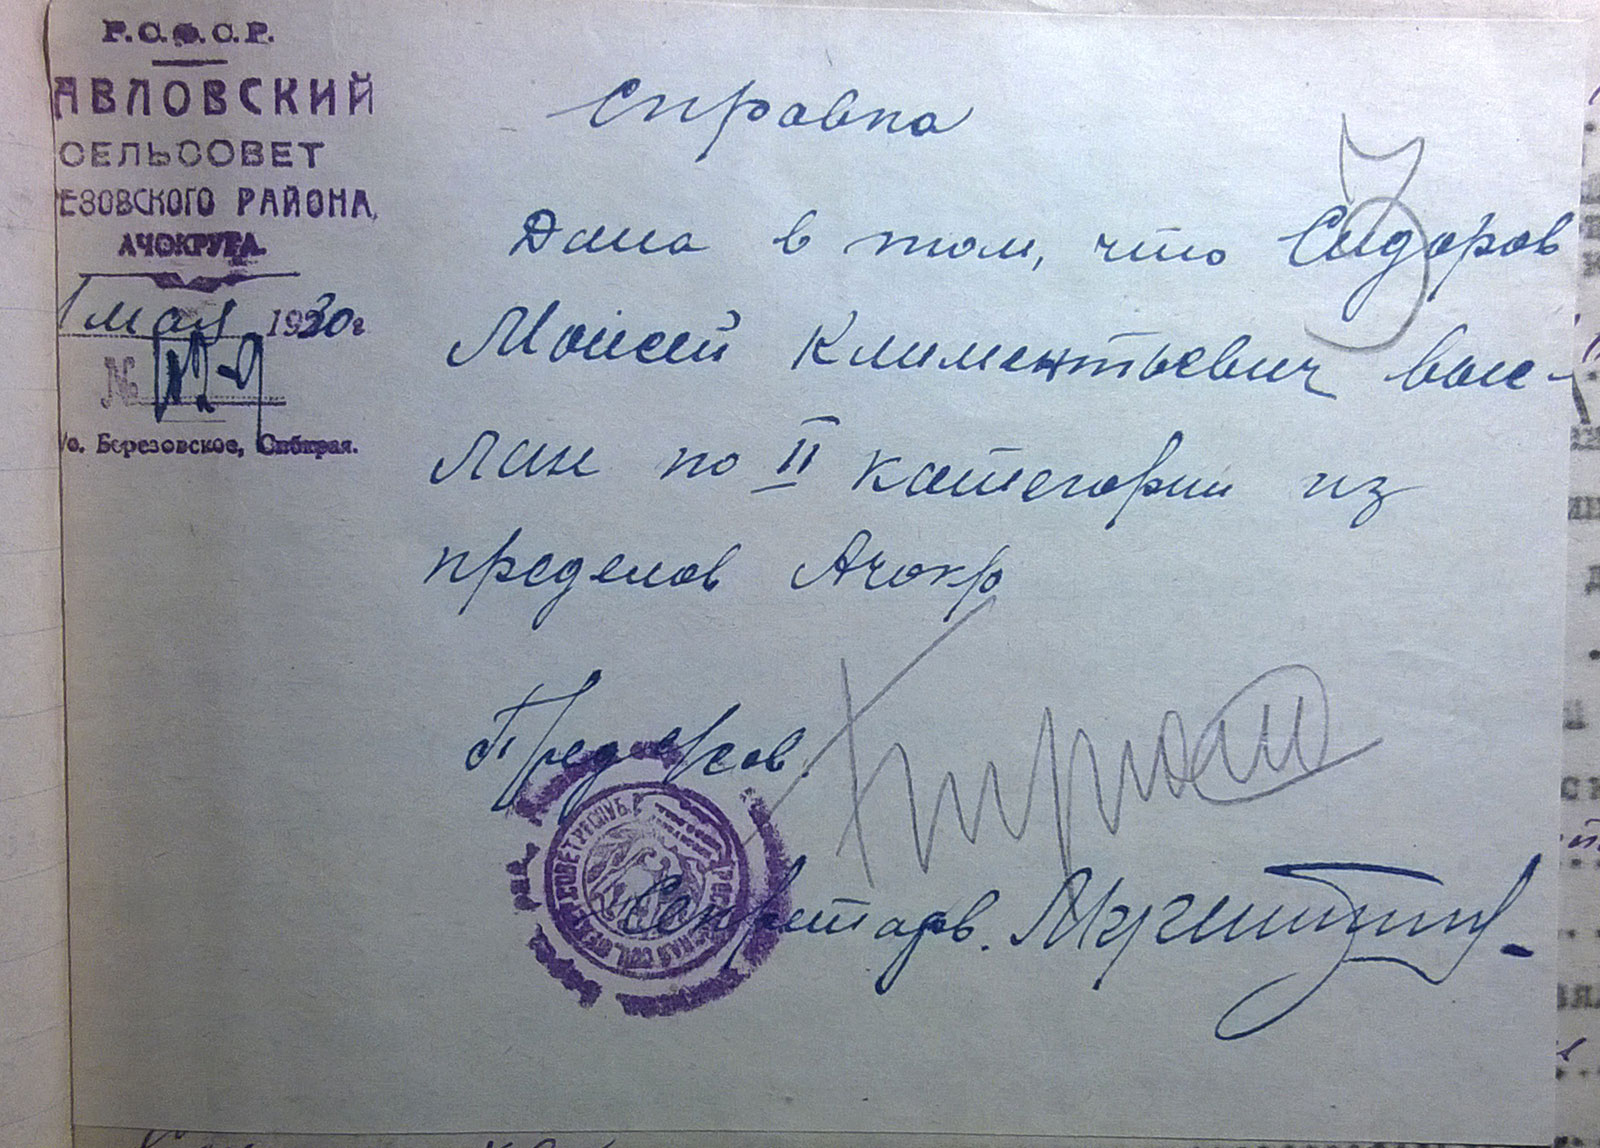 Р.С.Ф.С.Р.
АВЛОВСКИЙ
СЕЛЬСОВЕТ
ЕЗОВСКОГО РАЙОНА,
АЧОКРУГА.
1 мая 1930 г
№
п/о. Березовское, Сибкрая.
Справка
Дана в том, что Сидоров
Моисей Климентьевич выс-
лан по II категории из
пределов Ачокр
Пред
Секретарь.